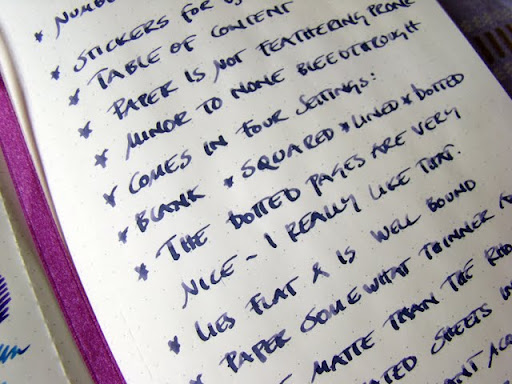 * NUMB
* STICKERS FOR
* TABLE OF CONTENT
* PAPER IS NOT FEATHERING PRONE
* MINOR TO NONE BLEEDTHROUGH
* COMES IN FOUR SETTINGS:
* BLANK * SQUARED * LINED * DOTTED
* THE DOTTED PAGES ARE VERY
NICE ~ I REALLY LIKE THAT
* LIES FLAT & IS WELL BOUND
* PAPER SOMEWHAT THINNER
MATTE THAN THE RHO
SHEETS IN